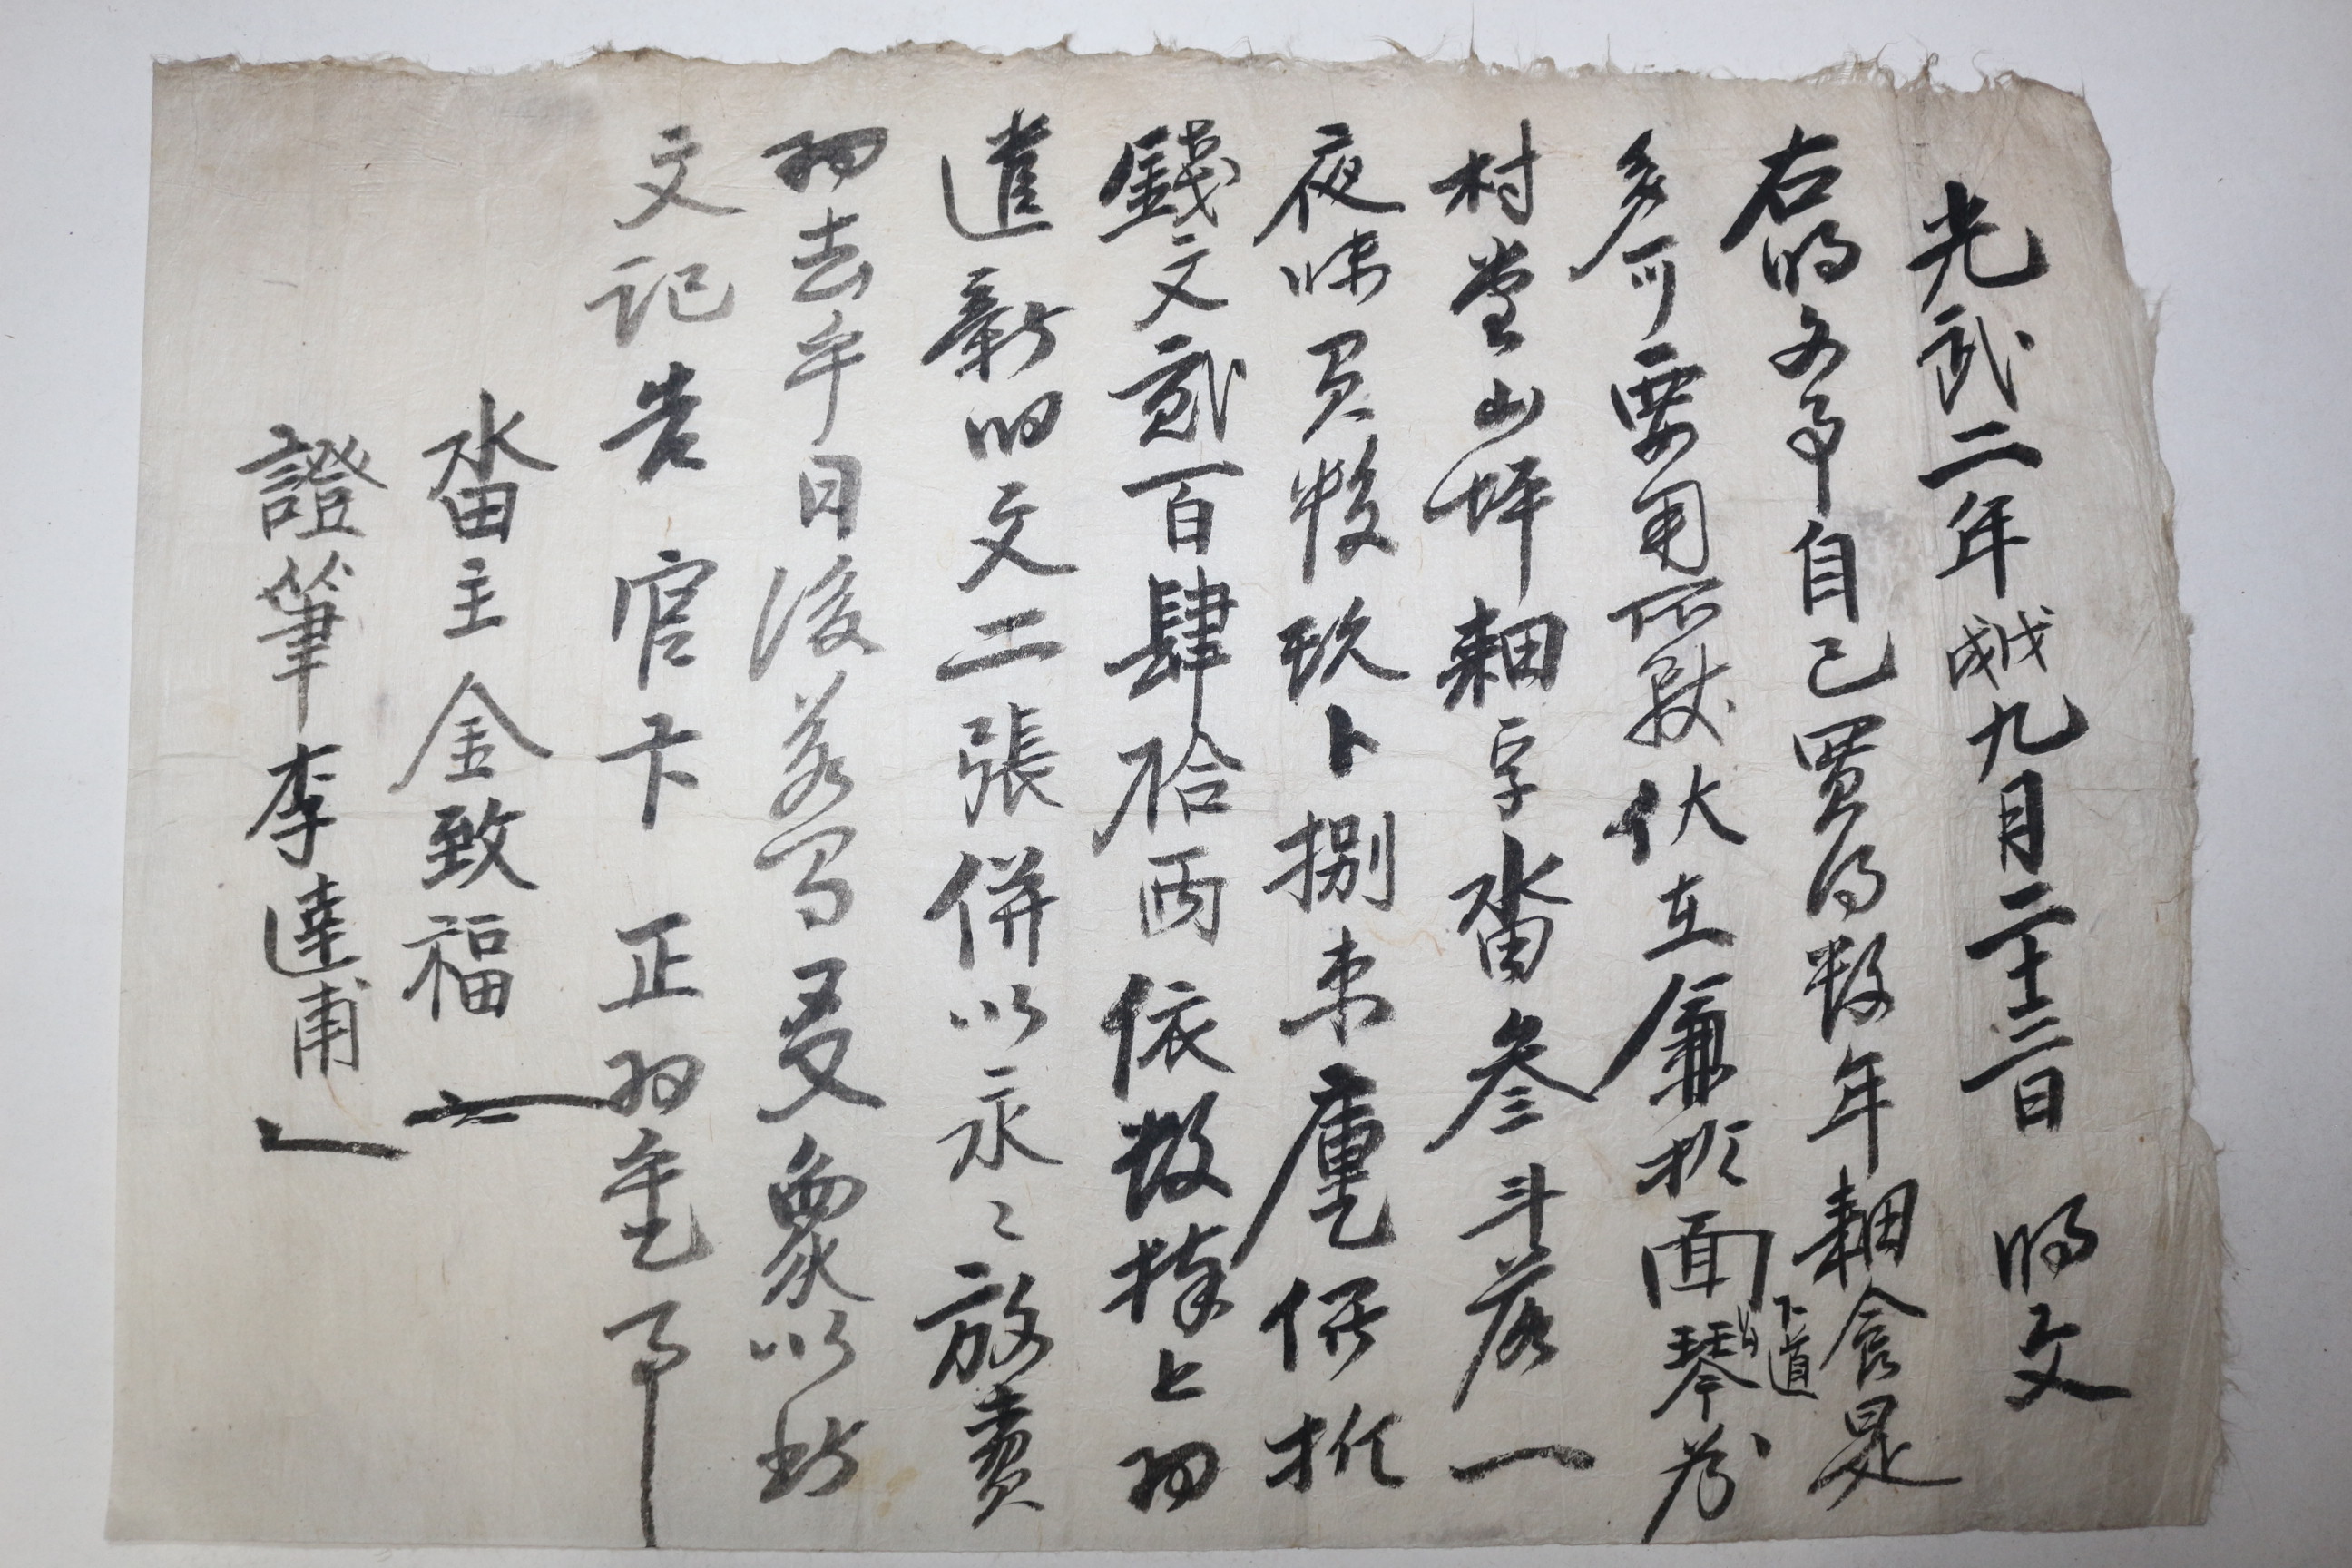 光武二年戊戌九月二十三日 明文
右明文事自己買得數年耕食是
多可要用所致伏在兼折面下道琴谷
村堂山坪耕字畓叁斗落一
夜味負數玖卜捌束庫乙價折
錢文貳百肆拾両依數捧上爲
遣新旧文二張併以永〻放賣
爲去乎日後若有爻象以此
文記告 官卞正爲乎乙事
畓主 金致福
證筆 李達甫